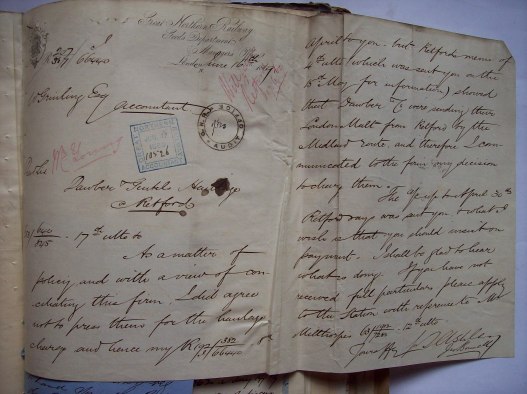 Great Northern Railway
Goods Department
London June 16th
66440
Grinling Esq
Accountant
G.N.R. GOODS
AUDIT
NORTHERN
ACCOUNTANT
10526
Retford
17th ulto
As a matter of
policy and with a view of con-
ciliating this firm, I did agree
not to press them for the haulage
charge and hence my
66440
April to you, but Retford memo of
4th ulto (which was sent you on the
15th May for information) showed
that Dawber & Co were sending their
London Malt from Retford by the
Midland route, and therefore I com-
municated to the firm my decision
to charge them.
The a/c up to April 30th
Retford says was sent you & what I
wish is that you should insist on
payment. I shall be glad to hear
what is doing. If you have not
received full particulars please apply
to the Station with reference to Mr
12th ulto
Yours truly